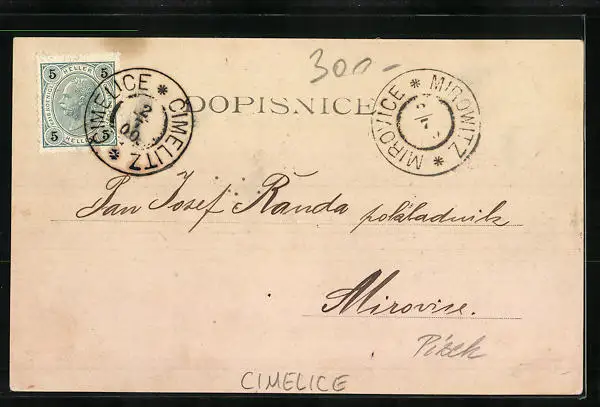 300-
5 HELLER 5
5 HELLER 5
CIMELICE * CIMELITZ *
2
00
DOPISNICE
MIROVICE * MIROWITZ *
Pan Josef Randa pokladník
Mirovice.
Písek
CIMELICE